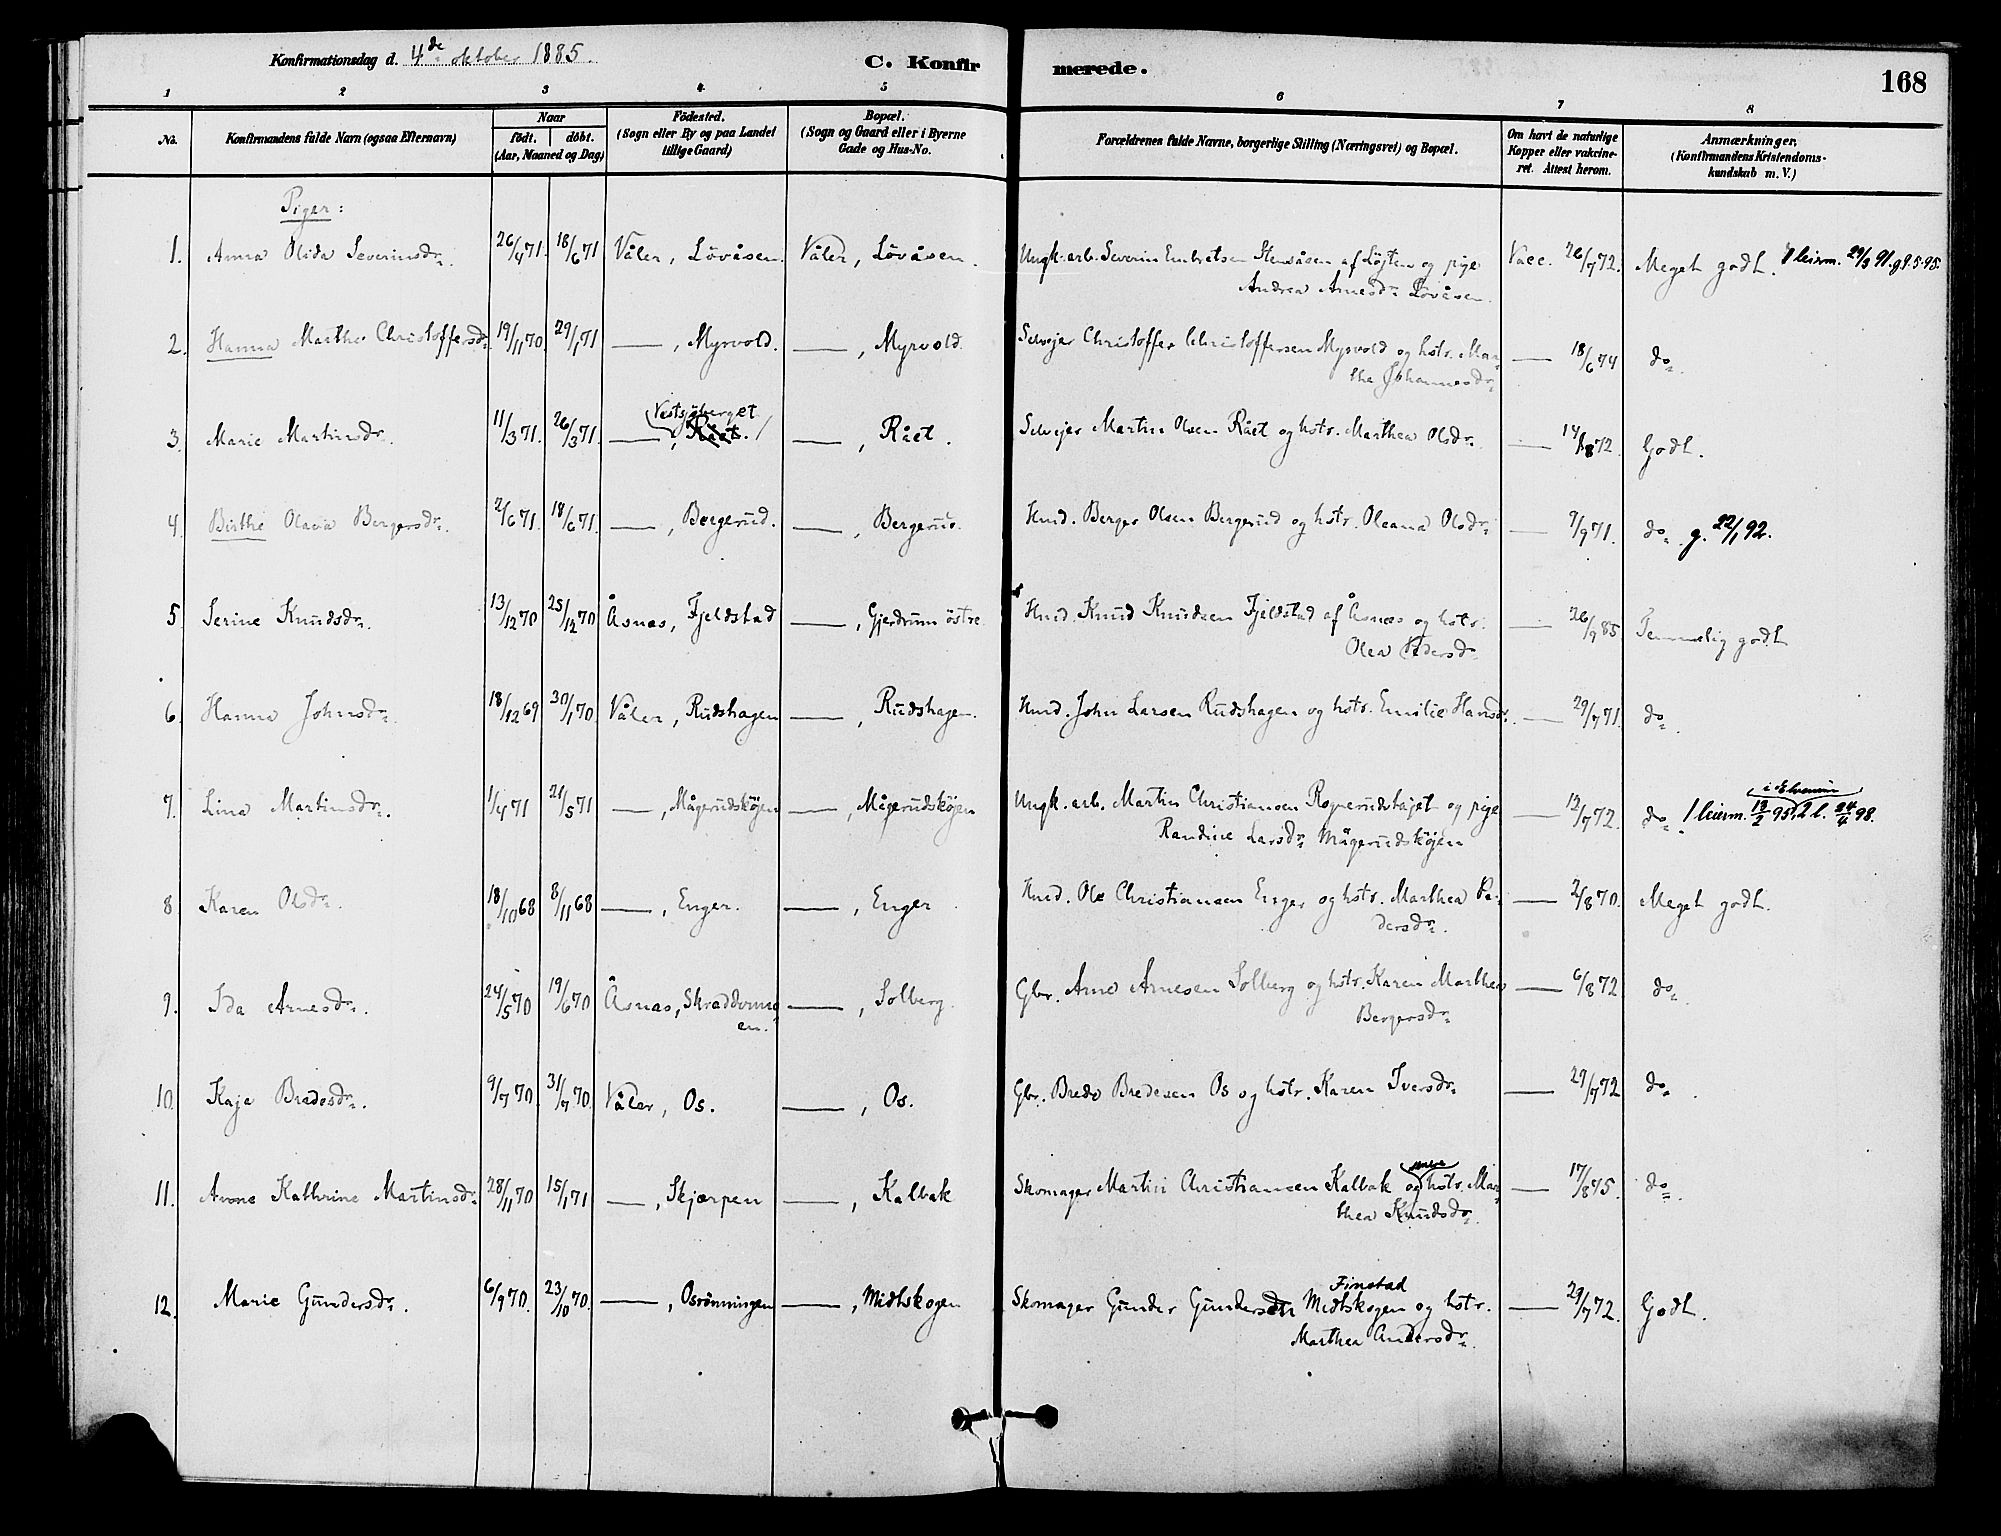 Konfirmationsdag d. 4de oktober 1885.
C. Konfirmerede.
168
1 2 3 4 5 6 7 8
No.
Konfirmandens fulde Navn (ogsaa Efternavn)
Naar
födt. döbt.
(Aar, Maaned og Dag)
Födested.
(Sogn eller By og paa Landet
tillige Gaard)
Bopæl.
(Sogn og Gaard eller i Byerne
Gade og Hus-No.
Forældrenes fulde Navne, borgerlige Stilling (Næringsvei) og Bopæl.
Om havt de naturlige
Kopper eller vakcine-
ret. Attest herom.
Anmærkninger.
(Konfirmandens Kristendoms-
kundskab m. V.)
Piger:
1. Anna Olida Severinsdr. 26/4 71. 18/6 71 Våler, Lövåsen. Våler, Lövåsen. Ungk. arb. Severin Embretsen Stensåsen af Löjten og pige Vacc. 26/7 72. Meget godt. 1 leierm. 29/3 91. g 9.5.95.
Andrea Arnesdr. Lövåsen.
2. Hanna Marthe Christoffersdr. 19/11 70. 29/1 71 —, Myrvold. —, Myrvold. Selvejer Christoffer Christoffersen Myrvold og hstr. Mar- — 18/6 74 do.
the Johannesdr.
Vestsjöberget
3. Marie Martinsdr. 11/3 71. 26/3 71. —, Rået. —, Rået. Selvejer Martin Olsen Rået og hstr. Marthea Olsdr. — 14/8 72 Godt.
4. Birthe Olava Bergersdr. 2/6 71. 18/6 71. —, Bergerud. —, Bergerud. Hmd. Berger Olsen Bergerud og hstr. Oleana Olsdr. — 7/9 71. do. g. 22/1 92.
5 Serine Knudsdr. 13/12 70 25/12 70 Åsnas, Fjeldstad —, Gjerdrum östre. Hmd. Knud Knudsen Fjeldstad af Åsnæs og hstr. — 26/9 85 Temmelig godt
Olea Pedersdr.
6. Hanna Johnsdr. 18/12 69 30/1 70 Våler, Rudshagen —, Rudshagen. Hmd. John Larsen Rudshagen og hstr. Emilie Hansdr. — 29/7 71. do.
i Elverum
7. Lina Martinsdr. 1/4 71 21/5 71 —, Mågerudsköjen —, Mågerudsköjen Ungk. arb. Martin Christiansen Rognerudshajet og pige — 12/7 72. do. 1 leierm. 13/2 95, 2 l. 24/4 98.
Randine Larsdr. Mågerudsköjen
8. Karen Olsdr. 18/10 68 8/11 68 —, Enger. —, Enger. Hmd. Ole Christiansen Enger og hstr. Marthea Pe- — 2/8 70. Meget godt.
dersdr.
9. Ida Arnesdr. 24/5 70 19/6 70 Åsnas, Skraddermo- —, Solberg. Gbr. Arne Arnesen Solberg og hstr. Karen Marthea — 6/8 72 do.
en. Bergersdr.
10. Kaja Bredesdr. 9/7 70. 31/7 70. Våler, Os. —, Os. Gbr. Brede Bredesen Os og hstr. Karen Iversdr. — 29/7 72 do.
11. Anne Kathrine Martinsdr. 28/11 70 15/1 71 —, Skjærpen —, Kalbak Skomager Martin Christiansen Kalbak og hstr. Mar- — 17/8 75. do.
thea Knudsdr.
Finstad
12. Marie Gundersdr. 6/9 70. 23/10 70. —, Osrönningen —, Midtskogen Skomager Gunder Gundersen Midtskogen og hstr. — 29/7 72. Godt.
Marthea Andersdr.